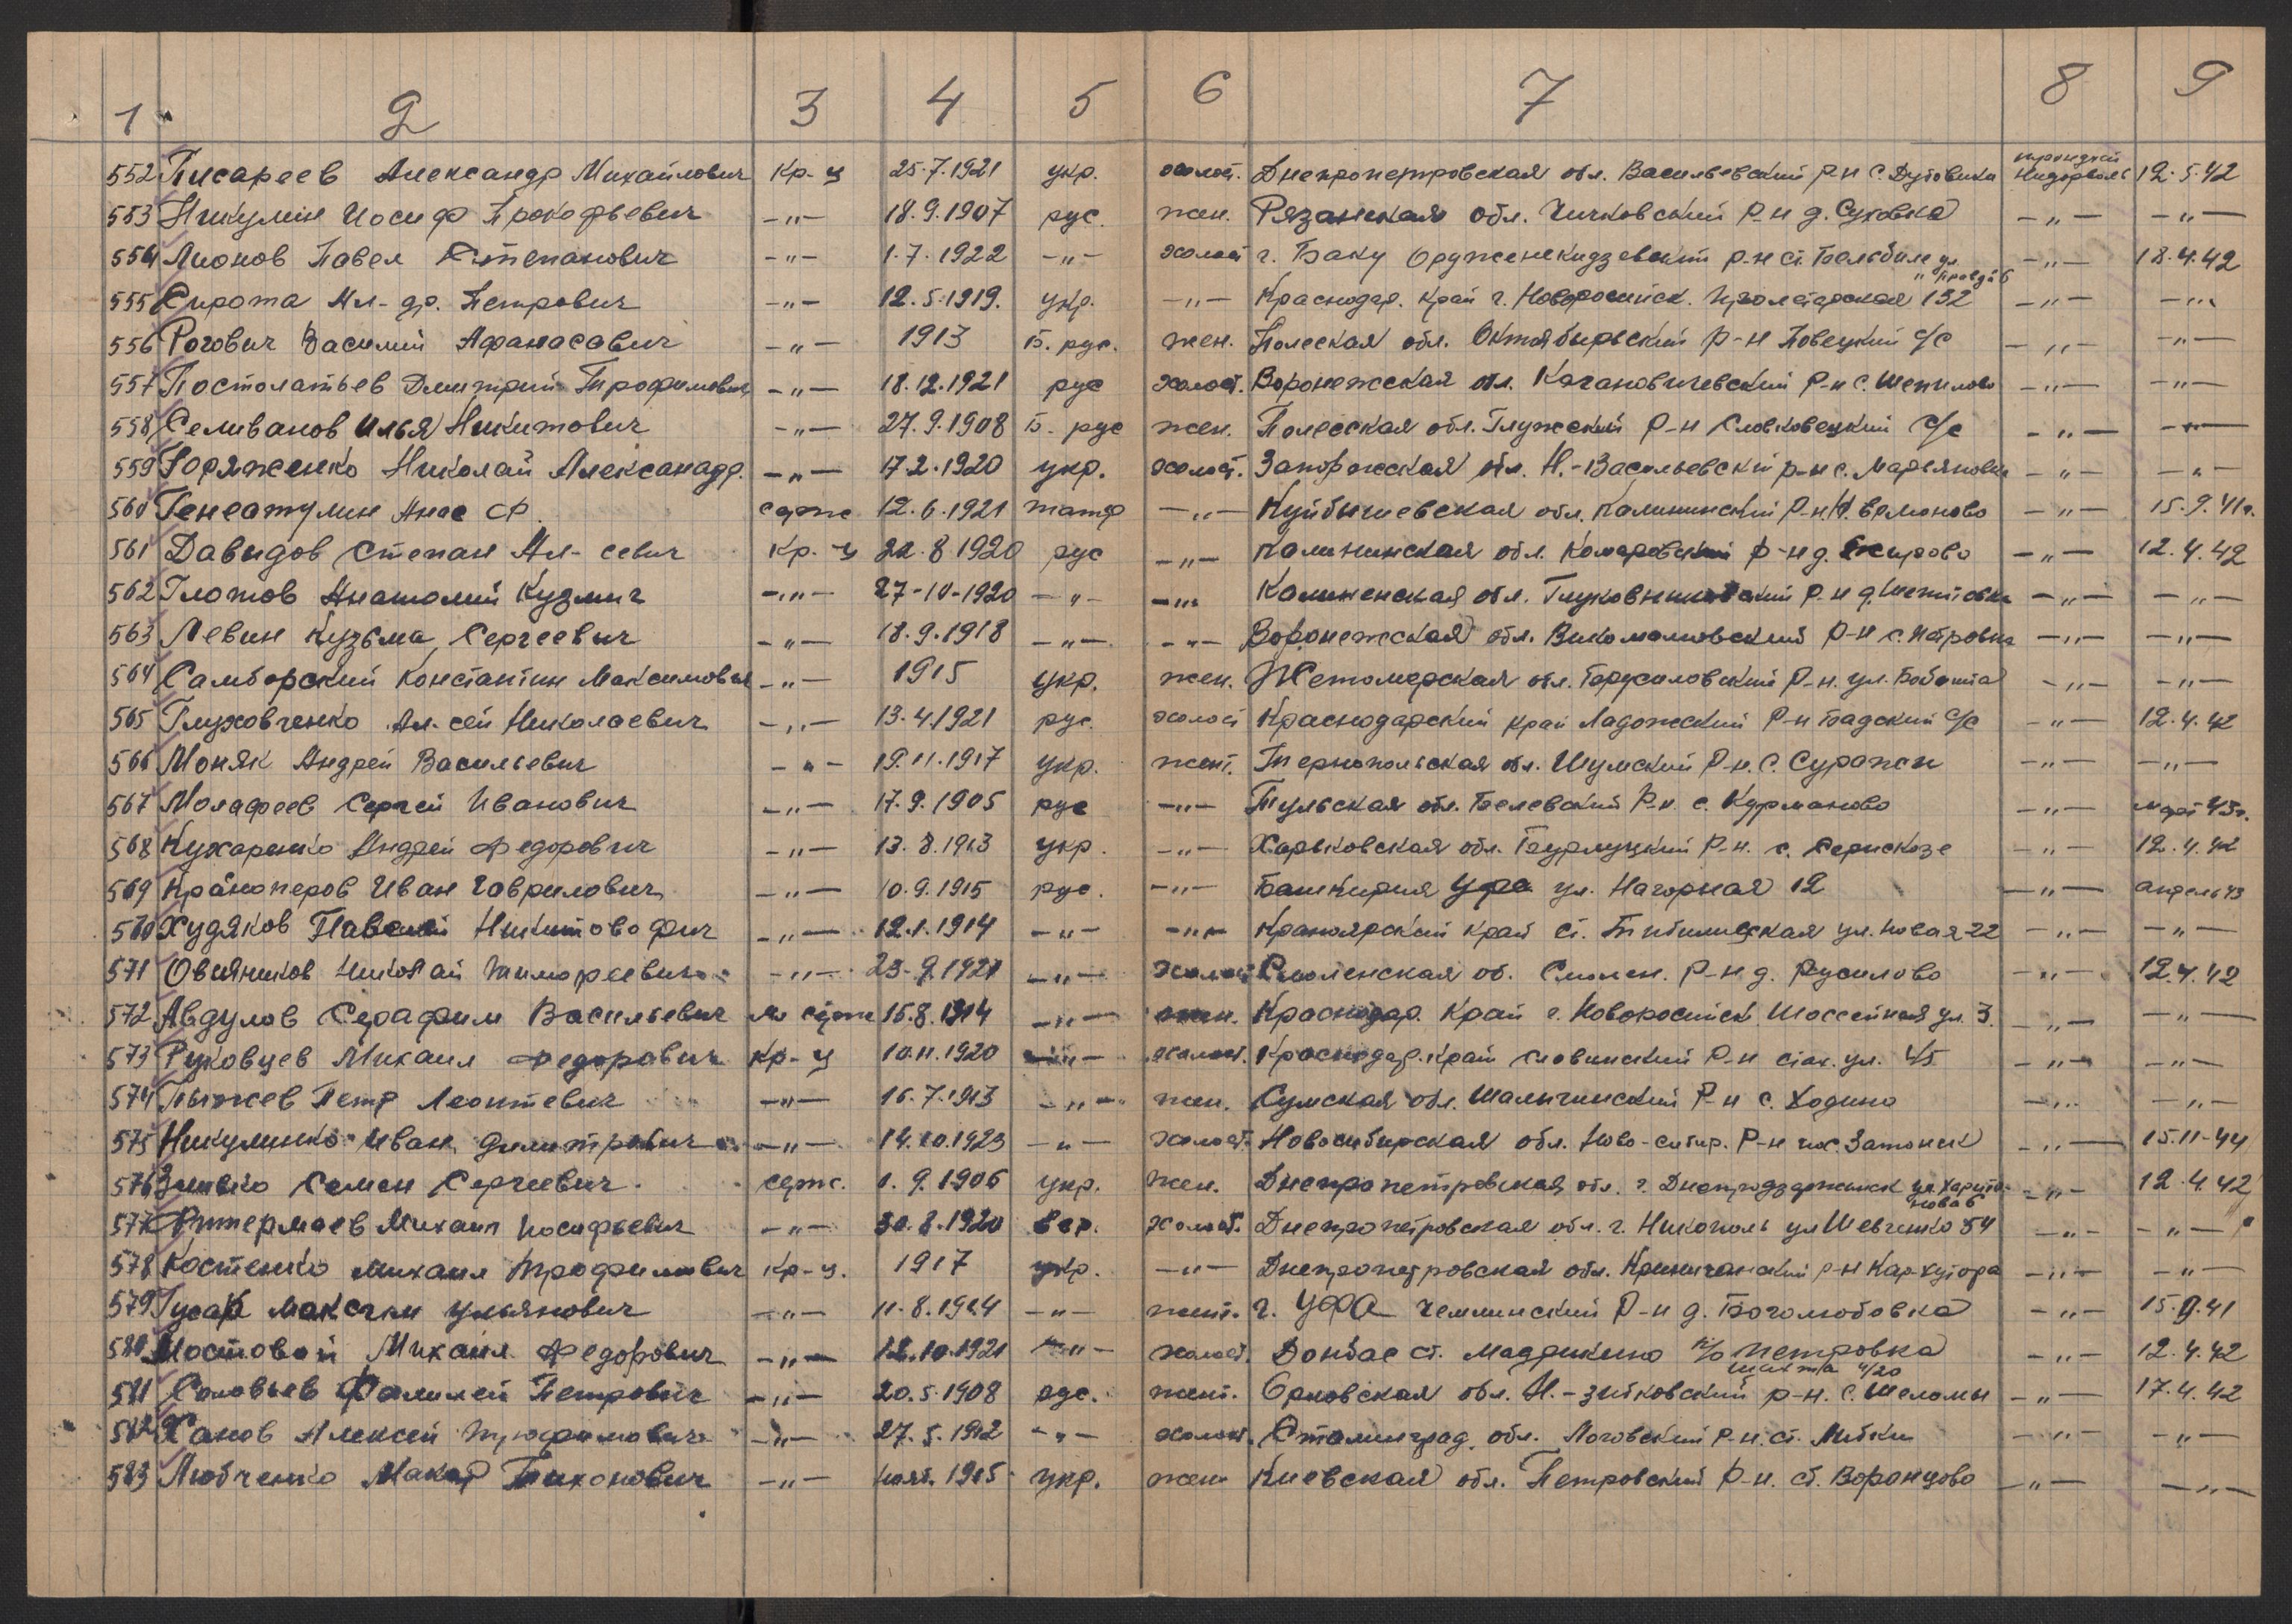 1 2 3 4 5 6 7 8 9
552 Писареев Александр Михайлович кр-ц 25.7.1921 укр. холост. Днепропетровская обл. Васильевский р-н с. 12.5.42
553 Никулин Иосиф Прокофьевич -"- 18.9.1907 рус. жен. Рязанская обл. Чучковский р-н д. Суховка -"- -"-
554 Лионов Павел Степанович -"- 1.7.1922 -"- холост г. Баку Орджонекидзевский р-н ст. ул. -"- 18.4.42
555 Сирота Ал-др. Петрович -"- 12.5.1919. укр. -"- Краснодар. край г. Новоросийск. Пролетарская 132 -"- -"-
556 Рогович Василий Афанасавич -"- 1913 б. рус. жен. Полеская обл. Октябырьский р-н Повецкий с/с -"- -"-
557 Постолатьев Дмитрий Трофимович -"- 18.12.1921 рус холост. Воронежская обл. Кагановичевский р-н с. Шепилово -"- -"-
558 Селиванов Илья Никитович -"- 27.9.1908 б. рус жен. Полесская обл. Глужский р-н Словковецкий с/с -"- -"-
559 Горяженко Николай Александр. -"- 17.2.1920 укр. холост. Запорожская обл. Н.-Васильевский р-н с. Марьяновка -"- -"-
560 Генеатулин Анас Ф. серж 12.6.1921 татар -"- Куйбышевская обл. Калининский р-н Н. Ермоново -"- 15.9.41г.
561 Давыдов Степан Ал-севич кр-ц 22.8.1920 рус -"- Калининская обл. Комаровский р-н д. -"- 12.4.42
562 Глотов Анатолий Кузмич -"- 27-10-1920 -"- -"- Калиненская обл. р-н д. -"- -"-
563 Левин Кузьма Сергеевич -"- 18.9.1918 -"- -"- Воронежская обл. р-н с. Петровка -"- -"-
564 Самборский Константин Максимович -"- 1915 укр. жен. Жетомерская обл. Барусиловский р-н. ул. -"- -"-
565 Глуховченко Ал-сей Николаевич -"- 13.4.1921 рус. холост Краснодарский край Ладожский р-н с/с -"- 12.4.42
566 Моняк Андрей Васильевич -"- 19.11.1917 укр. жен. Тернопольская обл. Шумский р-н. с. Суражи -"- -"-
567 Малафеев Сергей Иванович -"- 17.9.1905 рус -"- Тульская обл. Белевский р-н с. Курманово -"- март 43г.
568 Кухаренко Андрей Федорович -"- 13.8.1913 укр. -"- Харьковская обл. р-н. с. -"- 12.4.42
569 Кранаперов Иван Гаврилович -"- 10.9.1915 рус. -"- Башкирия Уфа ул. Нагорная 12 -"- апрель 43
570 Худяков Никитово фич -"- 12.1.1914 -"- -"- Краноярский край ст. ул. Новая-22 -"- -"-
571 Овияников Николай Тимофеевич -"- 23-9.1921 -"- холост Смоленская об. Смолен. р-н д. Русилово -"- 12.4.42
572 Авдулов Серафим Васильевич м серж 15.8.1914 -"- жен. Краснодар. край г. Новоросийск Шоссейная ул. 3. -"- -"-
573 Руковцев Михаил Федорович кр-ц 10.11.1920 -"- холост. Краснодар. край Славинский р-н стах. ул. 45 -"- -"-
574 Пыжев Петр Леонтевич -"- 16.7.1913 -"- жен. Сумская обл. Шалыгинский р-н с. Ходино -"- -"-
575 Никулинко Иван Димитривич -"- 14.10.1923 -"- холост. Новосибирская обл. Ново-сибир. р-н пос. Затонск -"- 15.11-44
576 Зинько Семен Сергеевич серж. 1.9.1906 укр. жен. Днепропетровская обл. г. Днепродзержинск ул. -"- 12.4.42
577 Михаил Иосифьевич -"- 30.8.1920 евр. холост. Днепропетровская обл. г. Никополь ул Шевченко 54 -"- -"-
578 Костенко Михаил Трофимович кр-ц. 1917 укр. -"- Днепропетровская обл. Криничанский р-н -"- -"-
579 Гусак Максим Ульянович -"- 11.8.1914 -"- жен. г. УФА Чешминский р-н д. Боголюбовка -"- 15.9.41
580 Мостовой Михаил Федорович -"- 12.10.1921 -"- холост. Донбас ст. Мадрикино п/о Петровка -"- 12.4.42
шахта 4/20
581 Соловьев Петрович -"- 20.5.1908 рус. жен. Орловская обл. р-н. с. Шеломы -"- 17.4.42
582 Ханов Алексей Трофимович -"- 27.5.1912 -"- холост. Сталинград. обл. Логовский р-н. ст. Липки -"- -"-
583 Любченко Макар Тихонович -"- нояб. 1915 укр. жен Киевская обл. Петровский р-н. ст. Воронцово -"- -"-